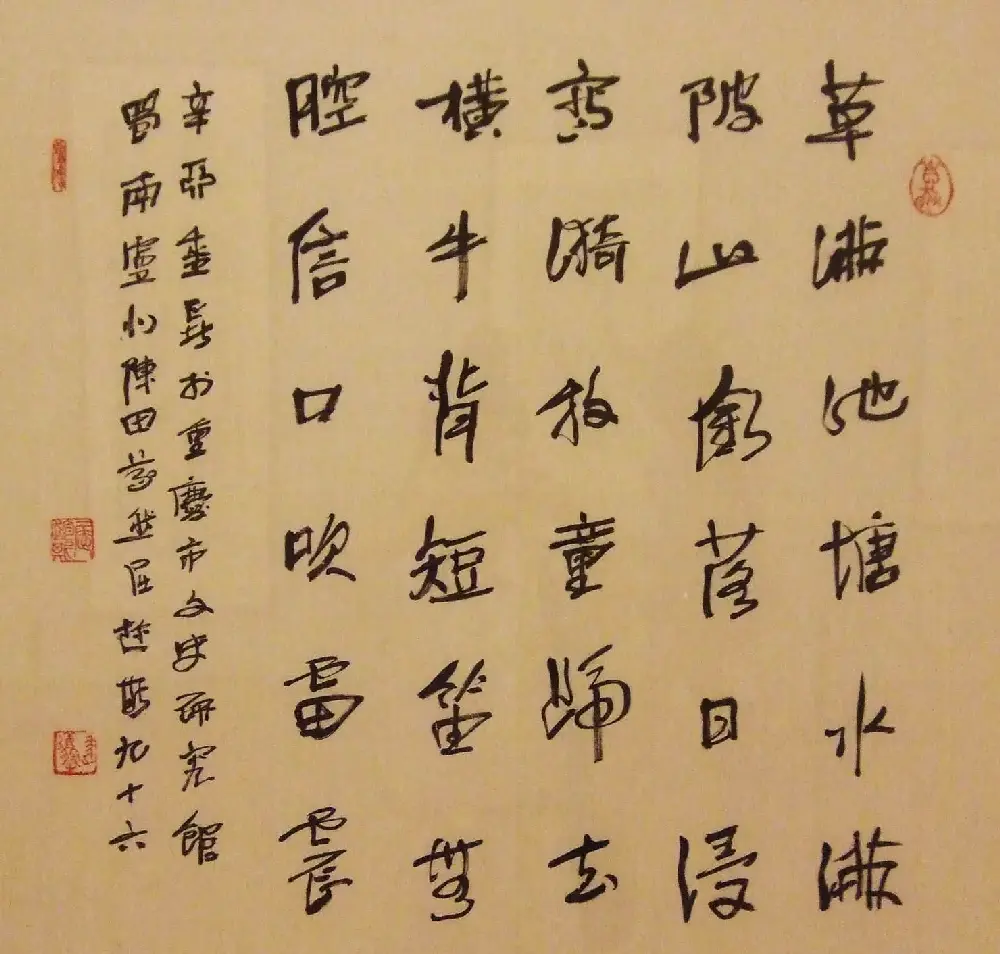 草滿池塘水滿
陂山銜落日浸
寒漪牧童歸去
橫牛背短笛無
腔信口吹雷震
辛 於重慶市文史研究館
蜀南 州陳田 九十六